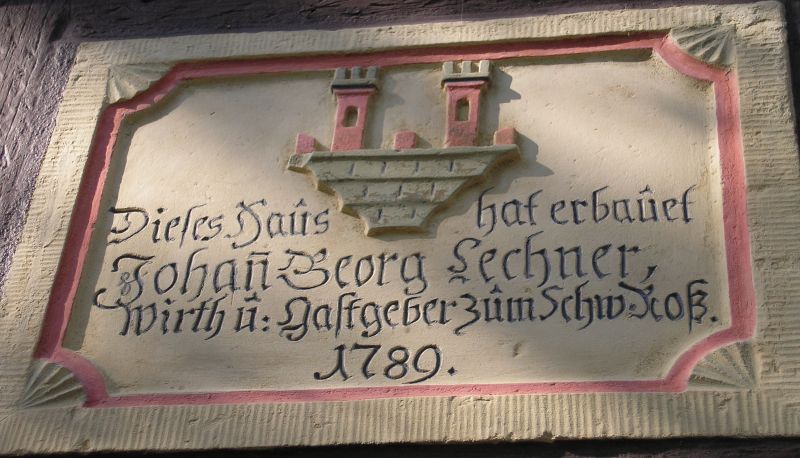 Dieſes Haûs hat erbaûet
Johan̄ Georg Lechner,
Wirth û: Gaſtgeber zûm Schw Roß.
1789.